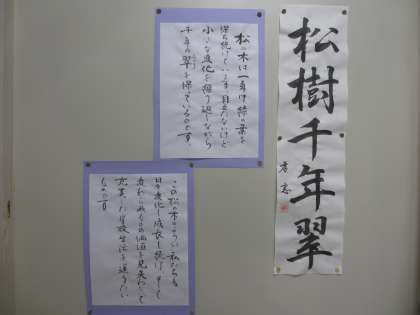 松樹千年翠
松の木は一年中緑の葉を
保ち続けています。目立たないけど
小さな変化を繰り返しながら
千年の翠を保っているのです。
この松の木のように、私たちも
日々変化し成長を続け、そして
変わらぬものの価値を見失わないで
充実した学校生活を送りたい
ものです